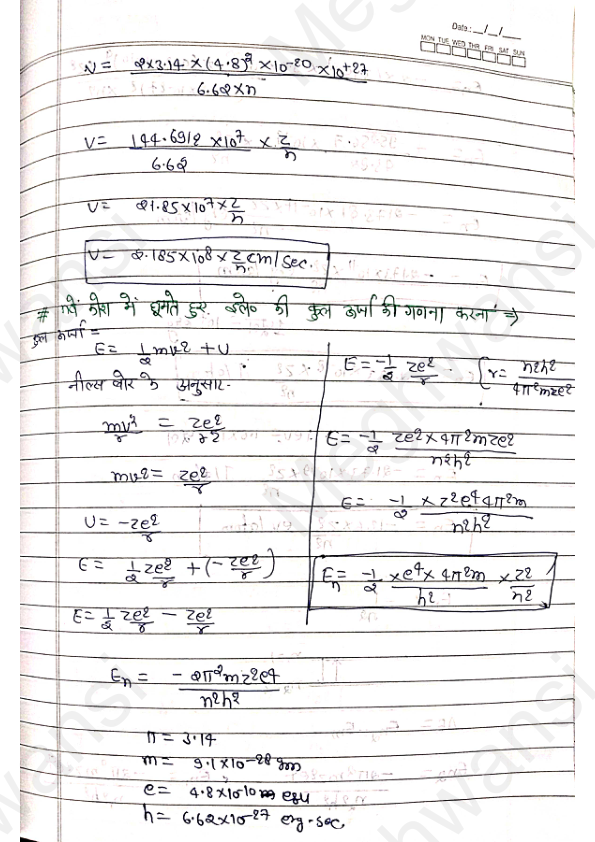 Date: __/__/__
MON TUE WED THR FRI SAT SUN
v = 2×3.14×(4.8)²×10⁻²⁰×10⁺²⁷ / 6.62×n
V = 144.6912×10⁷ / 6.62 × z/n
v = 21.85×10⁷×z/n
v = 2.185×10⁸×z/n cm/sec.
# nवें कोश में घूमते हुए इले० की कुल ऊर्जा की गणना करना ⇒
कुल ऊर्जा =
E = ½mv² + U
नील्स बोर के अनुसार-
mv²/r = ze²/r²
mv² = ze²/r
U = -ze²/r
E = ½ ze²/r + (-ze²/r)
E = ½ ze²/r - ze²/r
E = -½ ze²/r { r = n²h²/4π²mze²
E = -½ ze²×4π²mze²/n²h²
E = -½ × z²e⁴4π²m/n²h²
En = -½ × e⁴×4π²m/h² × z²/n²
En = -2π²mz²e⁴/n²h²
π = 3.14
m = 9.1×10⁻²⁸ gm
e = 4.8×10⁻¹⁰ esu
h = 6.62×10⁻²⁷ erg-sec
Meghwansi